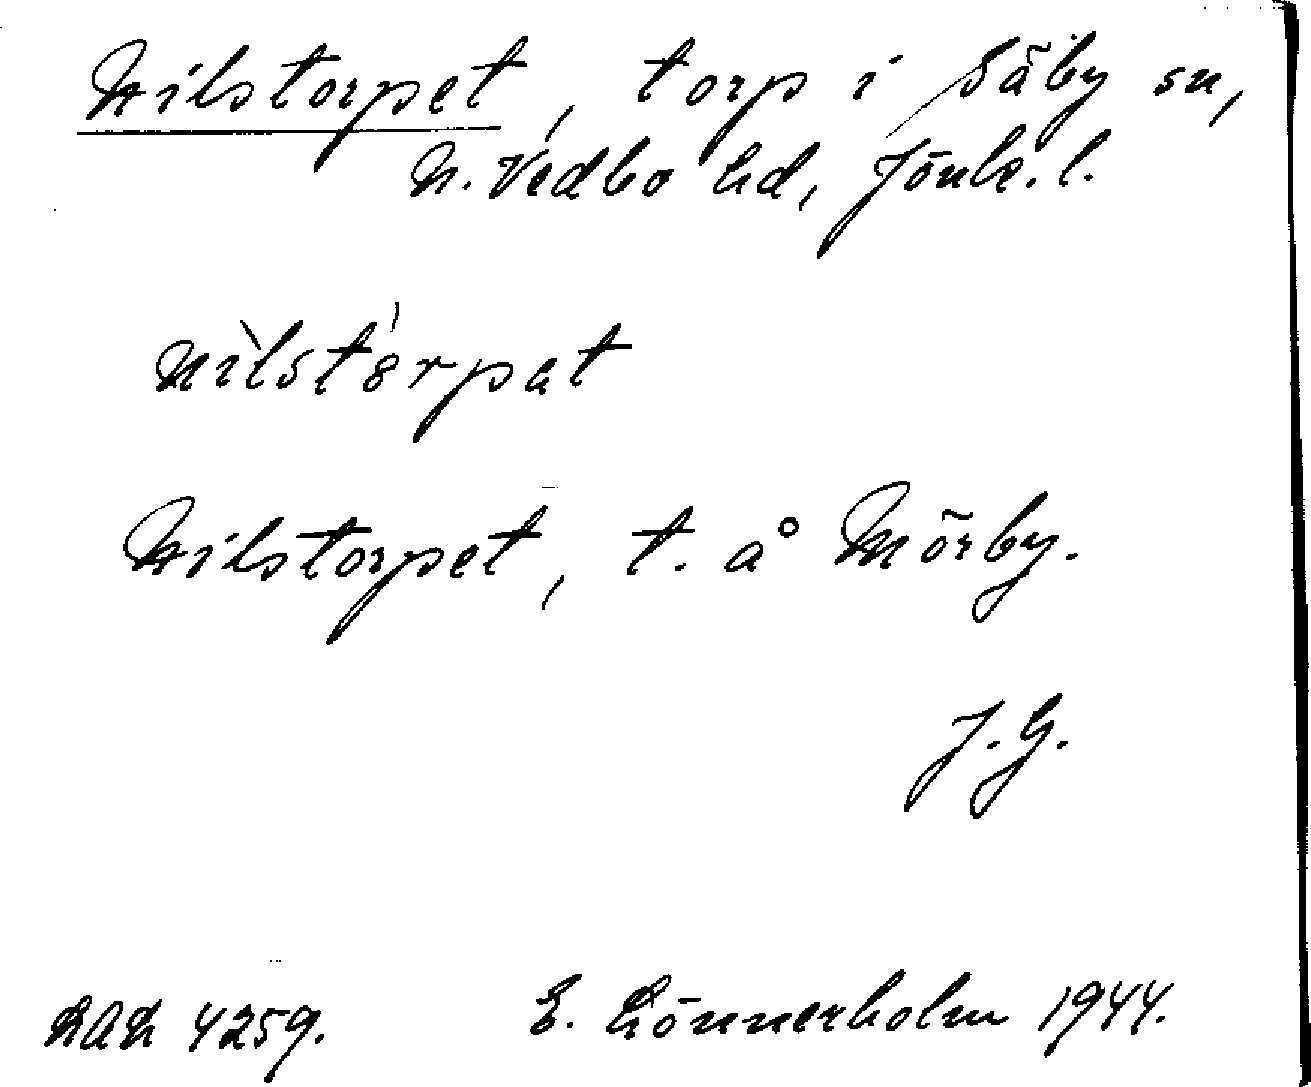 Nilstorpet, torp i Säby sn,
N. Vedbo hd, Jönk. l.
nìlstó̀rpat
Nilstorpet, t. å Mörby.
J. G.
LAL 4259. E. Lönnerholm 1944.